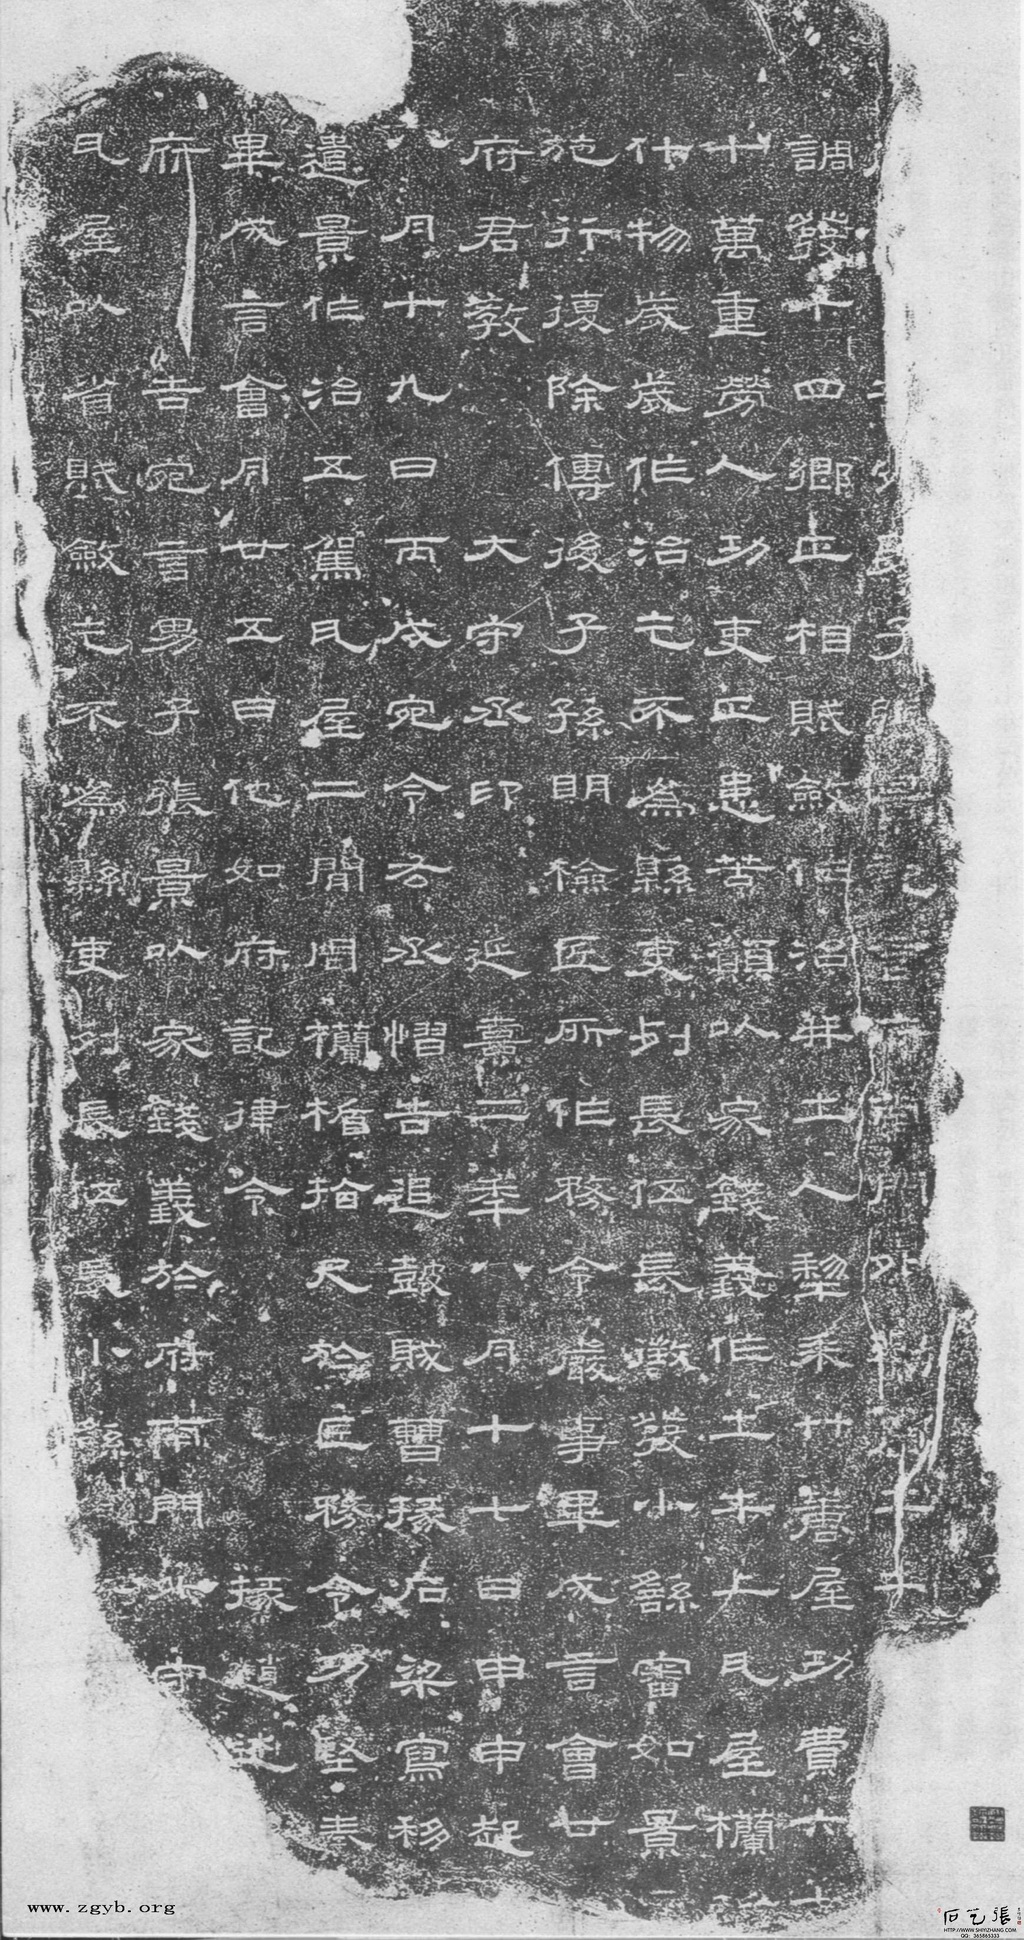 府告宛男子張景記言府南門外勸土牛
調發十四鄉正相賦斂作治并土人犁耒屋功費六
十萬重勞人功吏正患苦願以家錢義作土牛上瓦屋欄
什物歲歲作治乞不為縣吏列長伍長徵發小繇審如景
施行復除傳後子孫明檢匠所作務令嚴事畢成言會廿
府君教 大守丞印 延熹二年八月十七日甲申起
八月十九日丙戌宛令右丞慴告追鼓賊曹掾石梁寫移
遣景作治五駕瓦屋二間周欄楯拾尺於匠務令功堅奉
畢成言會月廿五日他如府記律令 掾趙述
府告宛言男子張景以家錢義於府南門外守
瓦屋以省賦斂乞不為縣吏列長伍長小繇
www.zgyb.org
張艺石
HTTP://WWW.SHIYIZHANG.COM
QQ: 365865333